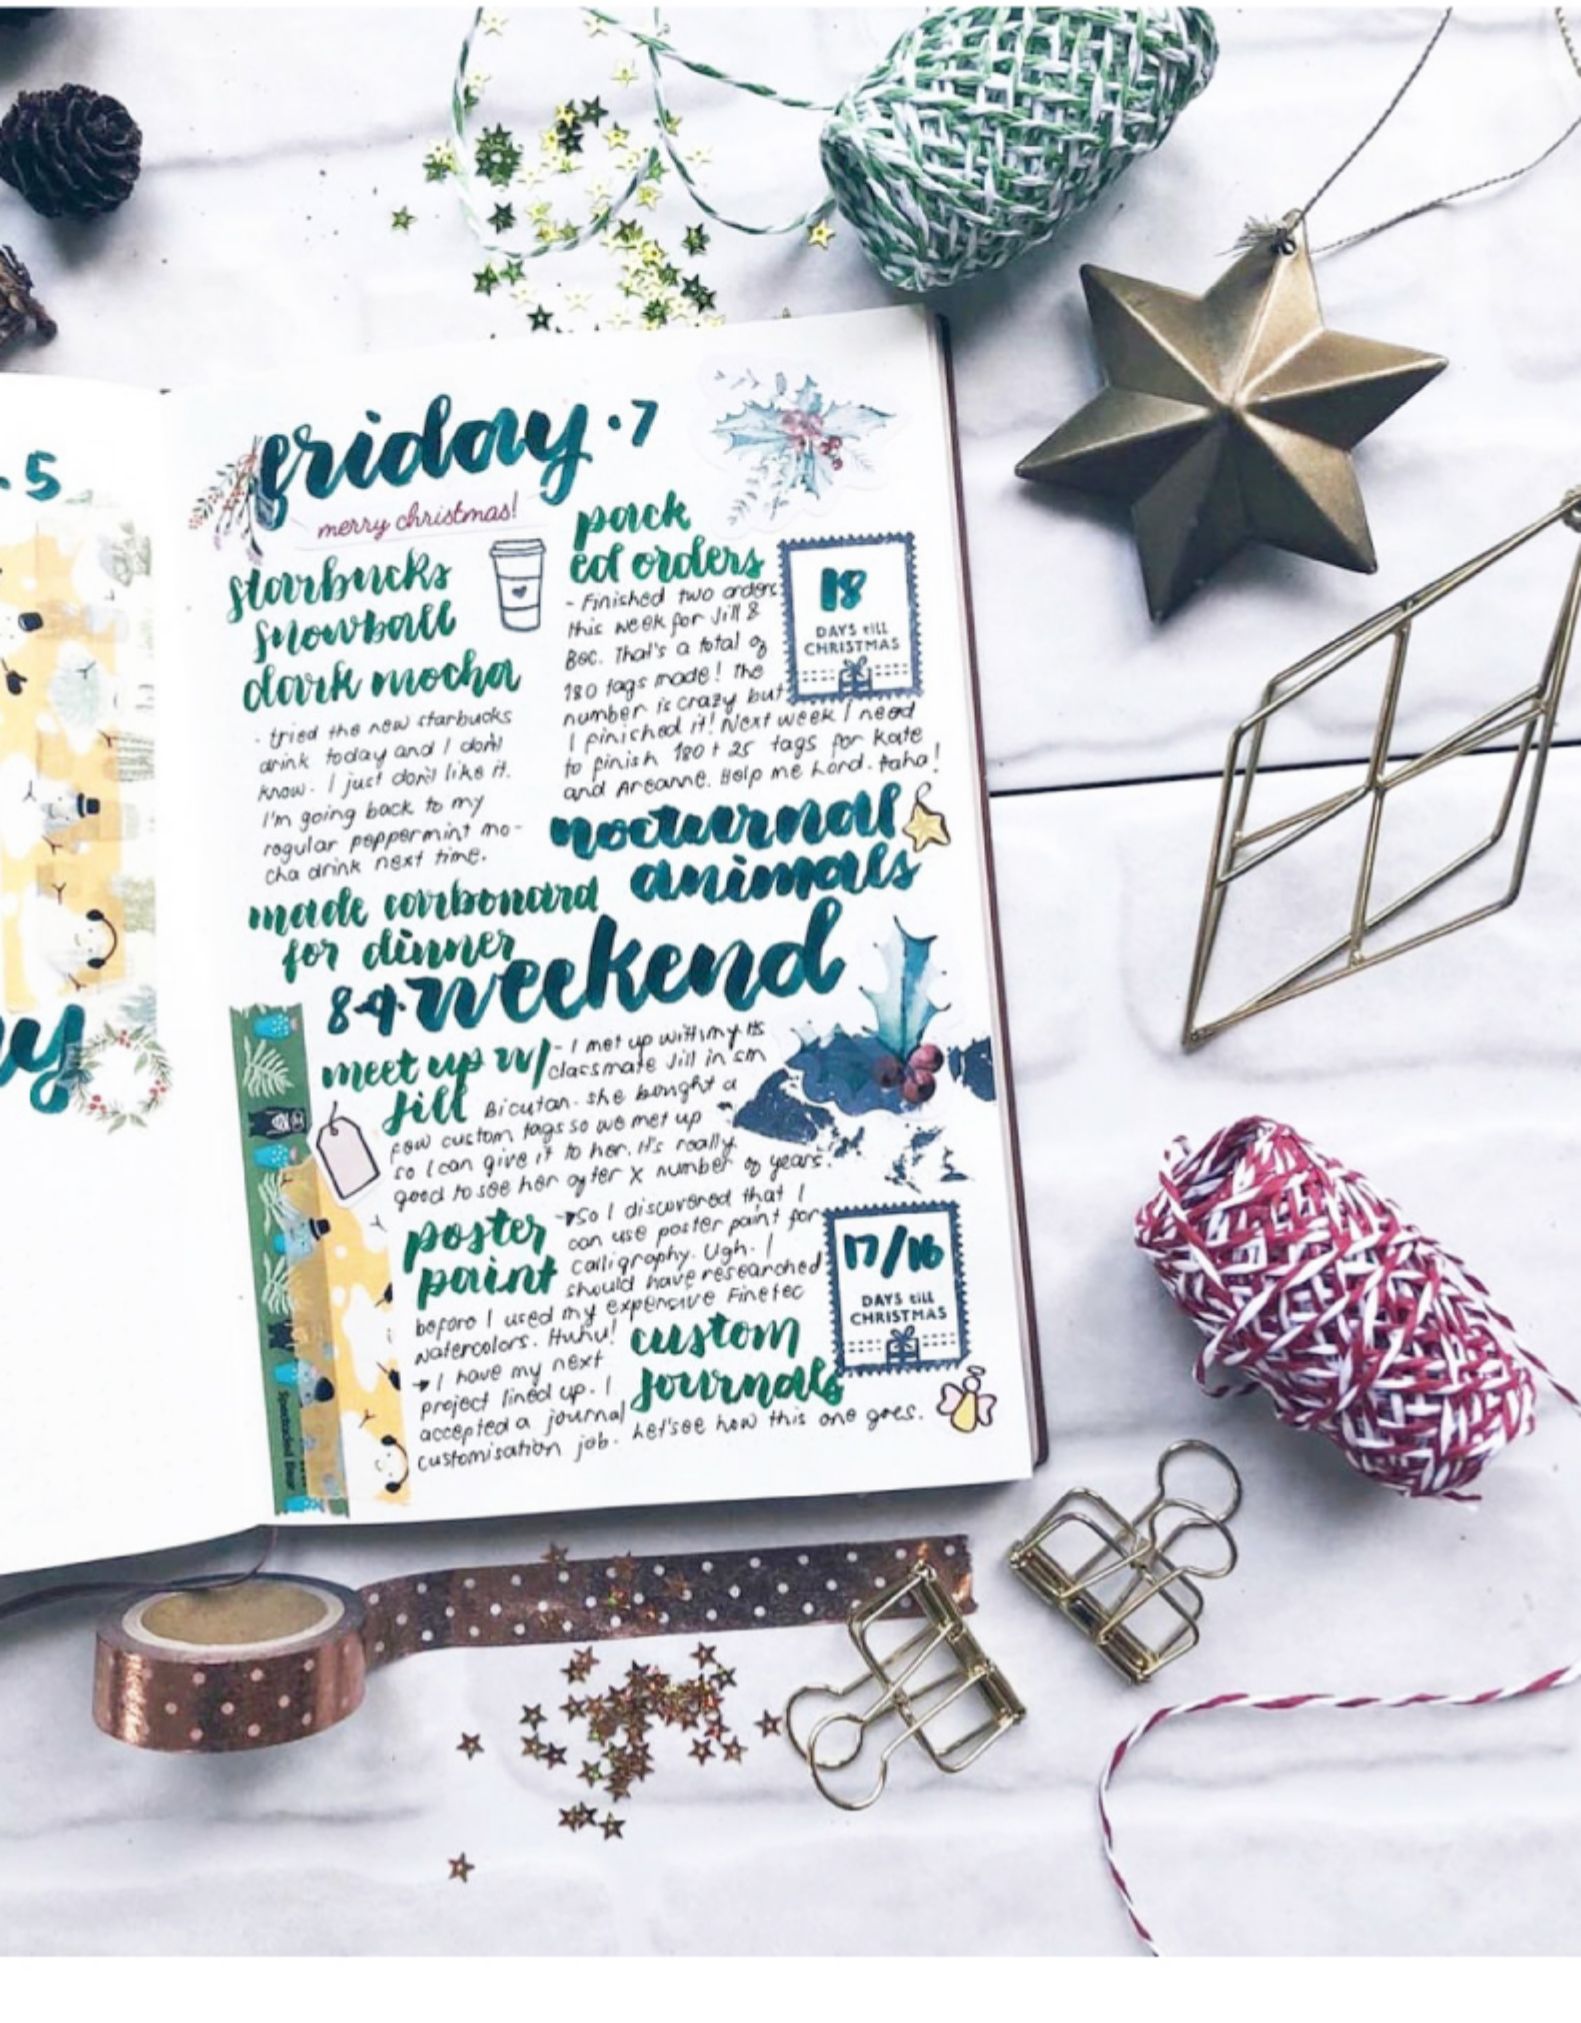 .5
y
friday .7
merry christmas!
starbucks
snowball
dark mocha
- tried the new starbucks
drink today and I don't
know. I just don't like it.
I'm going back to my
regular peppermint mo-
cha drink next time.
made carbonard
for dinner
pack
ed orders
- Finished two orders
this week for Jill &
Bec. That's a total of
180 tags made! The
number is crazy but
I finished it! Next week I need
to finish 180 + 25 tags for Kate
and Areanne. Help me Lord. Haha!
18
DAYS till
CHRISTMAS
nocturnal
animals
8-9 weekend
meet up w/
Jill
- I met up with my
classmate Jill in sm
Bicutan. She bought a
few custom tags so we met up
so I can give it to her. It's really
good to see her after X number of years.
poster
paint
→ So I discovered that I
can use poster paint for
calligraphy. Ugh. I
should have researched
before I used my expensive Finetec
watercolors. Huhu!
17/16
DAYS till
CHRISTMAS
custom
journals
→ I have my next
project lined up. I
accepted a journal
customisation job. Let's see how this one goes.